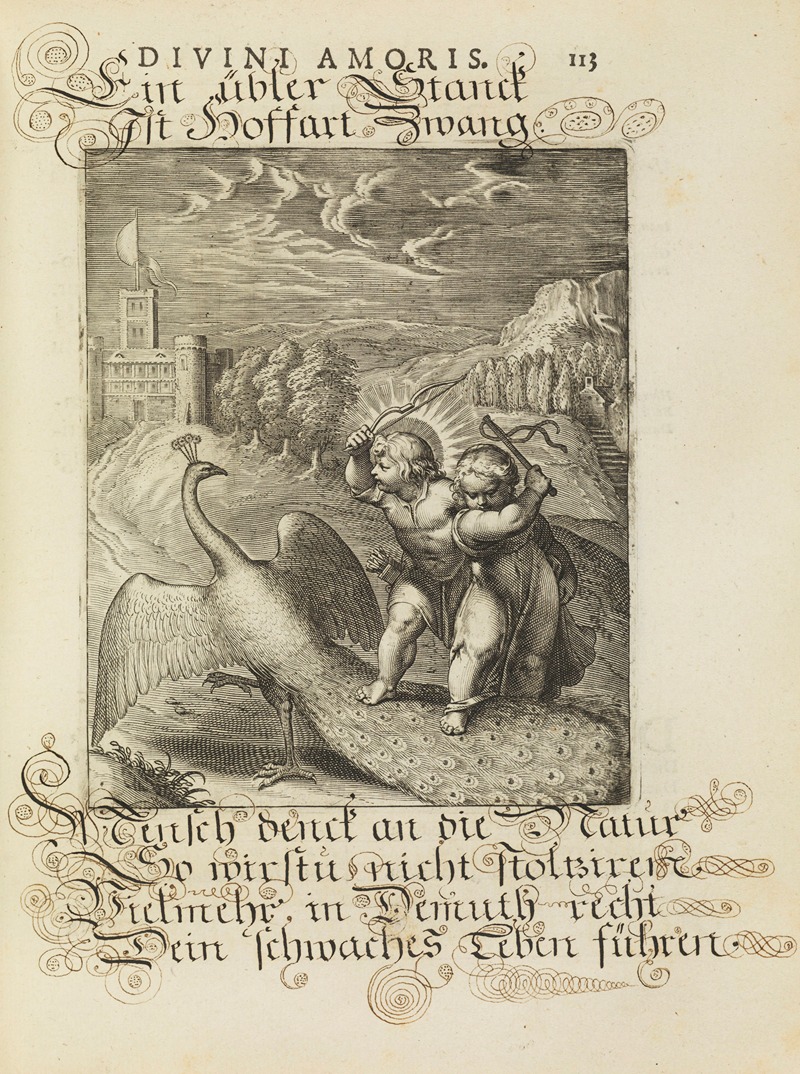 DIVINI AMORIS. 113
Ein übler Stanck
Ist Hoffart Zwang.
O Mensch denck an die Natur
So wirstu nicht stoltziren.
Vielmehr in Demuth recht
Dein schwaches Leben führen.